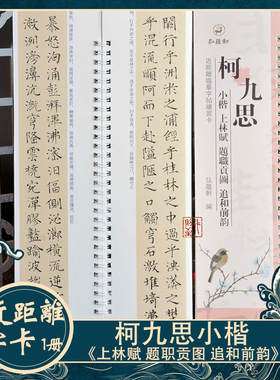 弘蕴軒
近距離臨摹字帖練習卡
柯九思
小楷 上林賦 題職貢圖 追和前韵
弘蕴軒 编
行乎洲淤之浦經乎桂林之中過乎泱漭之
乎混流順阿而下赴隘陿之口觸穹石激堆埼
暴怒洶涌彭湃滭沸宓汩偪側泌瀄橫流逆
洌滂濞沆溉穹隆雲橈宛潬膠盭踰波
近距離
字卡 1册
柯九思小楷
《上林赋 题职贡图 追和前韵》